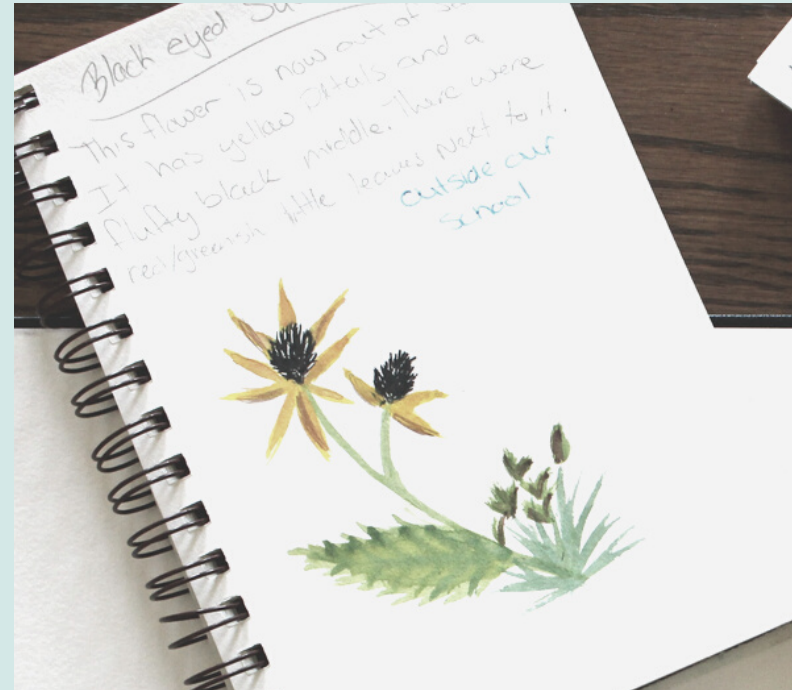 Black eyed Su
This flower is now out of
It has yellow petals and a
fluffy black middle. There were
red/greenish little leaves next to it.
outside our
school